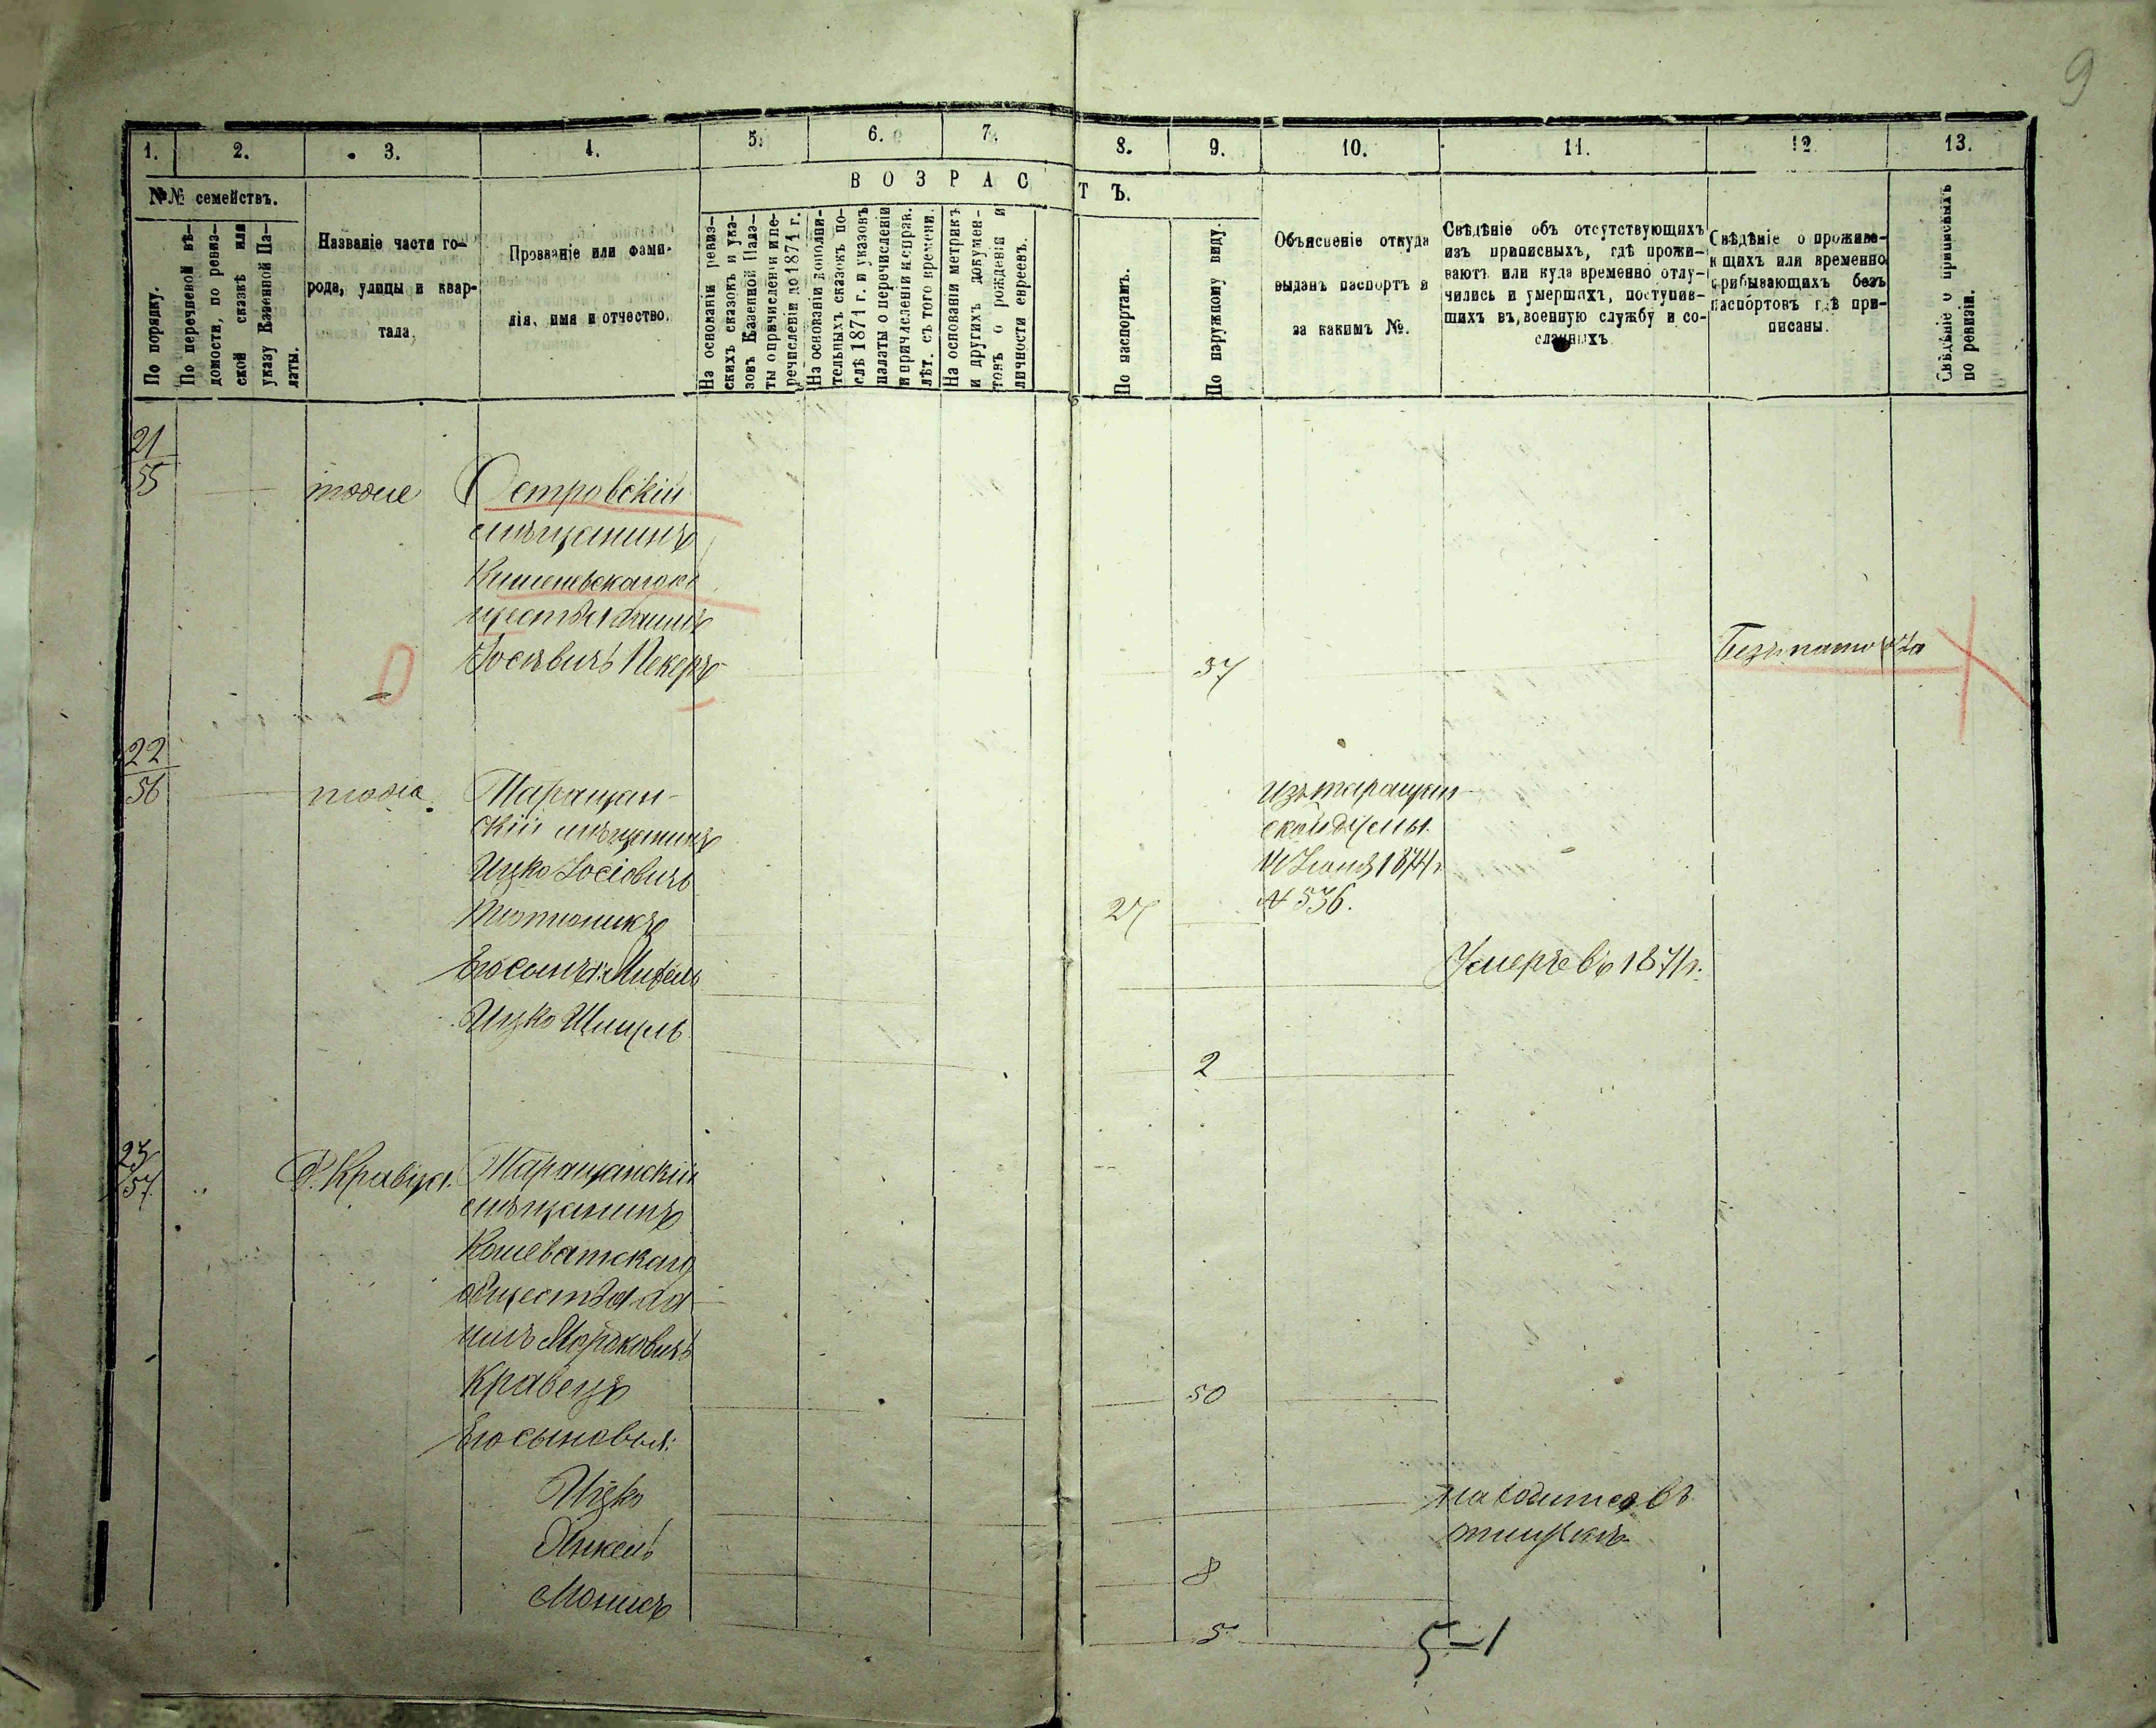 9
1. 2. 3. 4. 5. 6. 7. 8. 9. 10. 11. 12 13.
№№ семействъ.
По порядку.
По перечневой вѣ-
домости, по ревиз-
ской сказкѣ или
указу Казенной Па-
латы.
Названіе части го-
рода, улицы и квар-
тала.
Прозваніе или фами-
лія, имя и отчество.
ВОЗРАСТЪ.
На основаніи ревиз-
скихъ сказокъ и ука-
зовъ Казенной Пала-
ты о причисленіи и пе-
речисленіи до 1871 г.
На основаніи дополни-
тельныхъ сказокъ по-
слѣ 1871 г. и указовъ
палаты о перечисленіи
и причисленіи и справ.
лѣт. съ того времени.
На основаніи метрикъ
и другихъ докумен-
товъ о рожденіи и
личности евреевъ.
По паспортамъ.
По наружному виду.
Объясненіе откуда
выданъ паспортъ и
за какимъ №.
Свѣдѣніе объ отсутствующихъ
изъ приписныхъ, гдѣ прожи-
ваютъ или куда временно отлу-
чились и умершихъ, поступив-
шихъ въ военную службу и со-
сланныхъ
Свѣдѣніе о прожива-
ющихъ или временно
прибывающихъ безъ
паспортовъ гдѣ при-
писаны.
Свѣдѣніе о приписныхъ
по ревизіи.
21
55 тоже Островскій
мѣщанинъ
Іосевичъ Пекеръ 37
22
56 тоже Таращан-
скій мѣщанинъ
Ицко Іосіовичъ
Тютюникъ 27
Изъ таращан-
ской думы
Іюня 1874 г.
№ 536.
Его сынъ: Умеръ въ 1871 г.
Ицко 2
23
57 Кравца Таращанскій
мѣщанинъ
Кошеватскаго
общества
Мордковичъ
Кравецъ 50
Его сыновья:
Ицко находится въ
Янкель 8
Монисъ 5
5-1